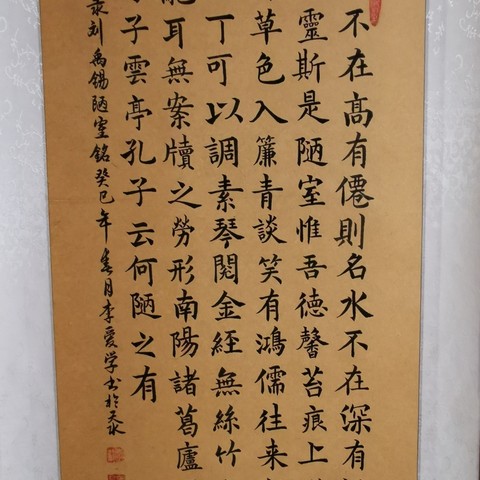 不在高有僊則名水不在深有
靈斯是陋室惟吾德馨苔痕上
草色入簾青談笑有鴻儒往来
丁可以調素琴閲金經無絲竹
耳無案牘之勞形南陽諸葛廬
子雲亭孔子云何陋之有
录刘禹锡陋室銘癸巳年春月李爱学书於天水